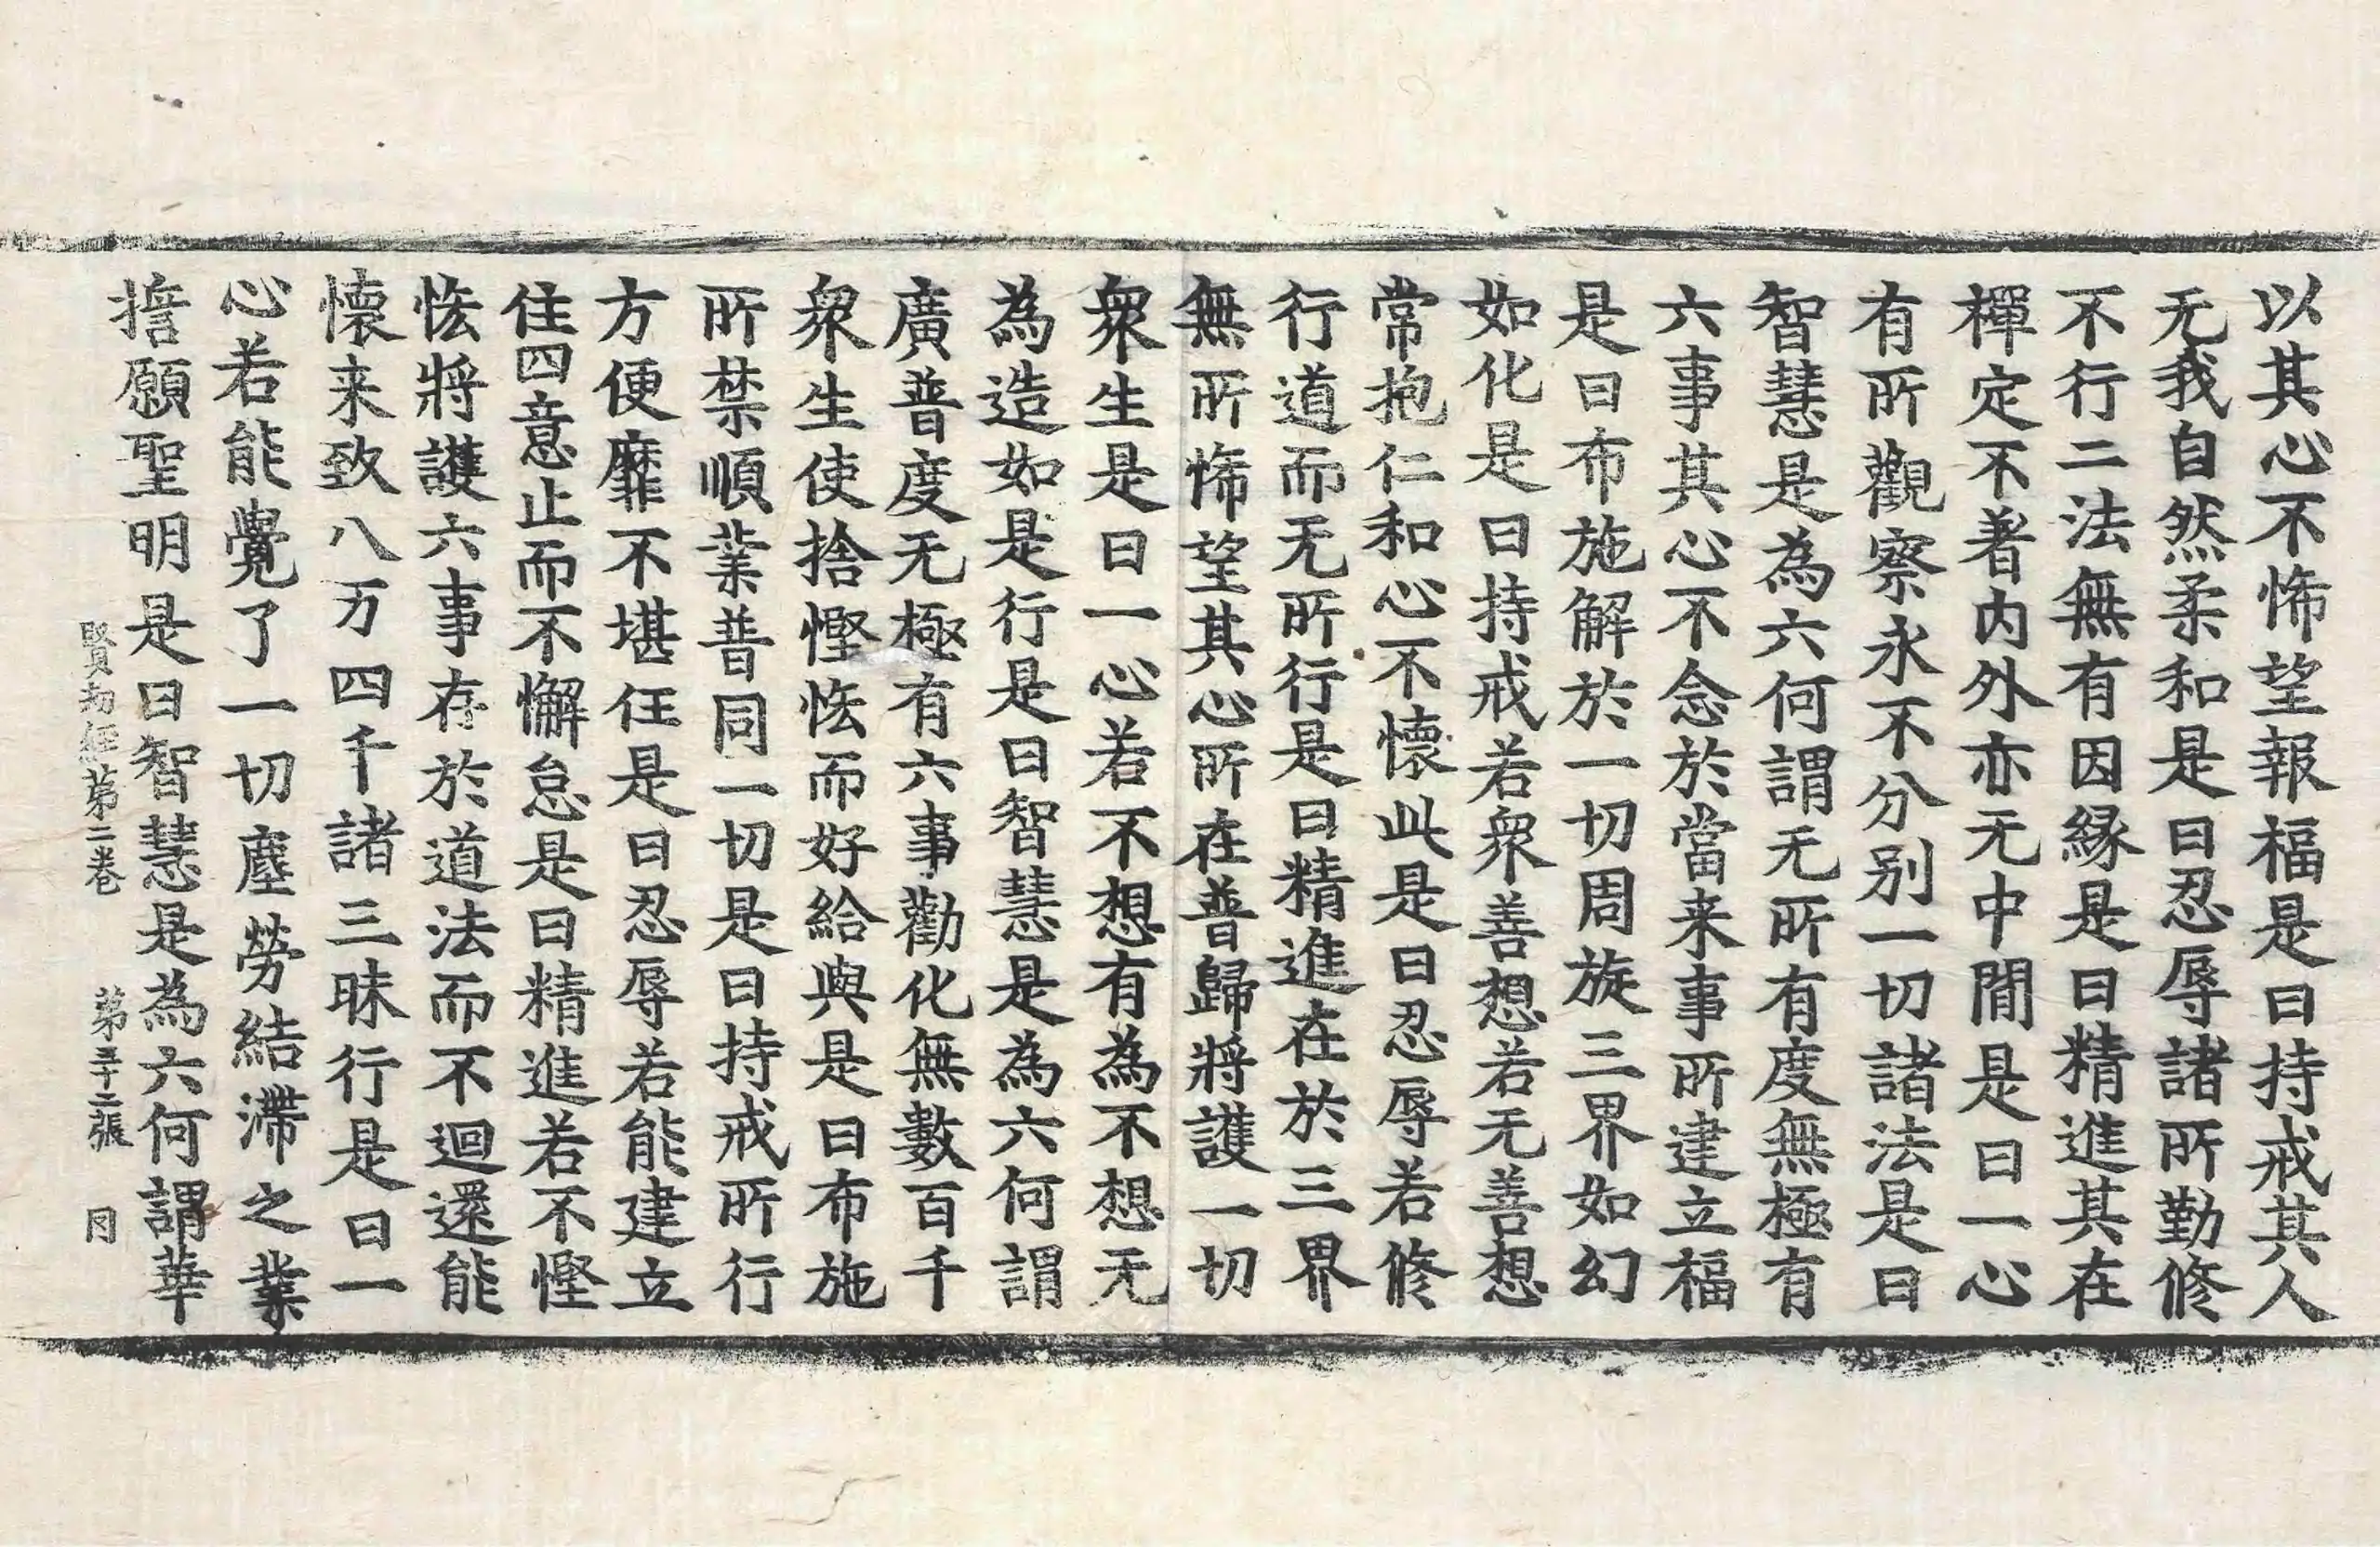 以其心不悕望報福是曰持戒其人
无我自然柔和是曰忍辱諸所勤修
不行二法無有因緣是曰精進其在
禪定不著内外亦无中閒是曰一心
有所觀察永不分别一切諸法是曰
智慧是為六何謂无所有度無極有
六事其心不念於當来事所建立福
是曰布施解於一切周旋三界如幻
如化是曰持戒若衆善想若无善想
常抱仁和心不懷此是曰忍辱若修
行道而无所行是曰精進在於三界
無所悕望其心所在普歸將護一切
衆生是曰一心若不想有為不想无
為造如是行是曰智慧是為六何謂
廣普度无極有六事勸化無數百千
衆生使捨慳恡而好給與是曰布施
所禁順業普同一切是曰持戒所行
方便靡不堪任是曰忍辱若能建立
住四意止而不懈怠是曰精進若不慳
恡將護六事存於道法而不迴還能
懷来致八万四千諸三昧行是曰一
心若能覺了一切塵勞結滯之業
擔願聖明是曰智慧是為六何謂華
賢劫經第二卷 第三十二張 冃